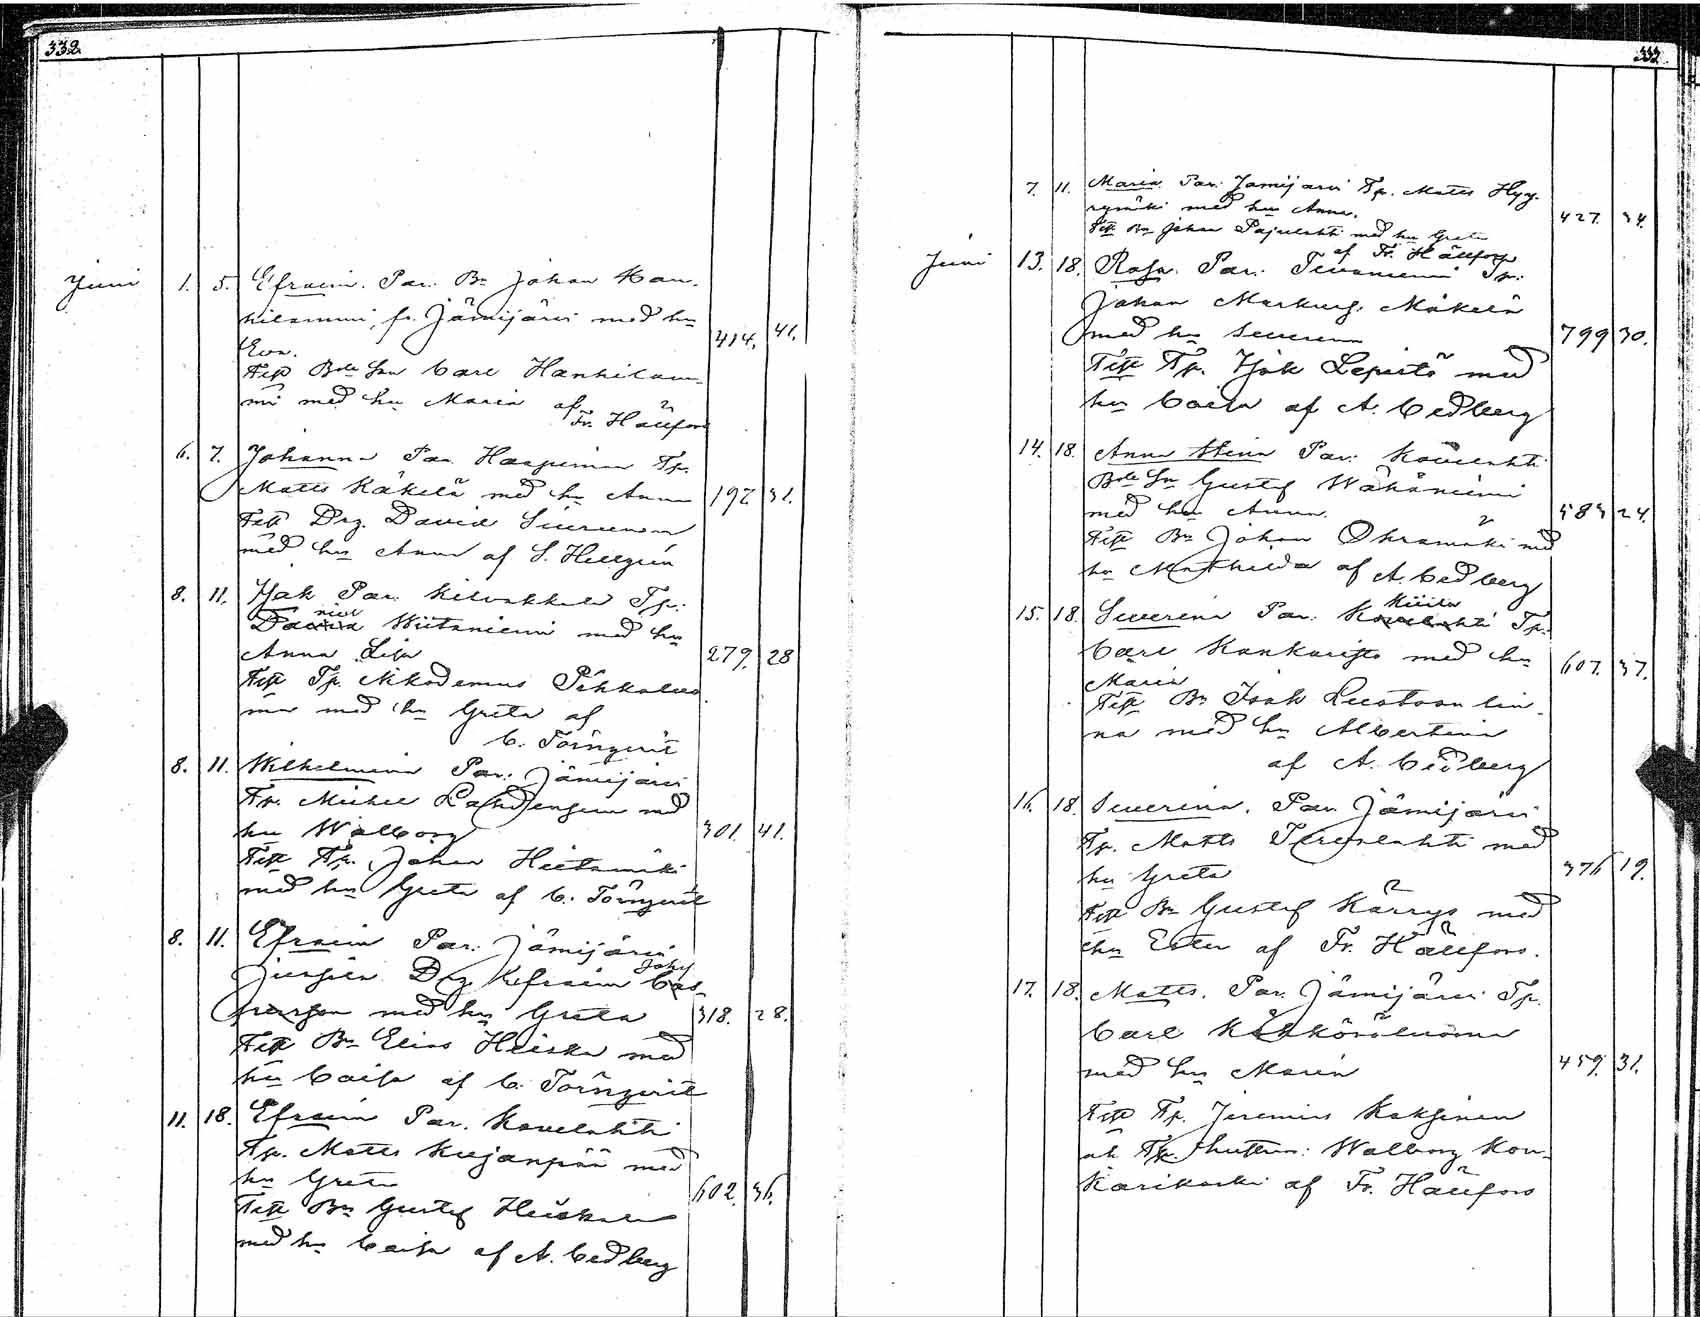 332
Juni 1. 5. Efraim. Par. Bn Johan Han-
kilammi, fr. Jämijärvi med hu
Eva. 414. 41.
Test Bde Son Carl Hankilam-
mi med hu Maria af
Fr. Hällfors
6. 7. Johanna Par. Haapimaa Tp.
Matts Käkelä med hu Anna 192 31.
Test Drg. David
med hu Anna af S. Hellgrén
8. 11. Isak Par. Kilvakkala Tp.
niel
David Wiitaniemi med hu
Anna Lisa 279. 28
Test Tp. Nikodemus Pehkolan
maa med hu Greta af
C. Törnqvist
8. 11. Wilhelmina Par. Jämijärvi
Tp. Michel med
hu Walborg 301. 41.
Test Tp. Johan Hietamäki
med hu Greta af C. Törnqvist
8. 11. Efraim Par. Jämijärvi
Drg. Kefraim Cas-
med hu Greta 318. 28.
Test Bn Elias Heiska med
hu Caisa af C. Törnqvist
11. 18. Efraim Par. Kovelahti
Tp. Matts Kujanpää med
hu Greta 602. 36.
Test Bn Gustaf Heiskala
med hu Caisa af A. Cedberg
332
7. 11. Maria Par. Jämijärvi Tp. Matts Hyy-
rymäki med hu Anna. 427. 34.
Test Bn Johan Pajulahti med hu Greta
af Fr. Hällfors
Juni 13. 18. Rosa Par. Tevaniemi Tp.
Johan Markus. Mäkelä
med hu Severina 799 30.
Test Tp. Isak Lepistö med
hu Caisa af A. Cedberg
14. 18. Anna Stina Par. Kovelahti
Bde Sn Gustaf Wähäniemi
med hu Anna. 583 24.
Test Bn Johan Ohramäki med
hu Mathilda af A. Cedberg
15. 18. Severina Par. Kovelahti Tp.
Carl Kankaristo med hu 607. 37.
Maria
Test Bn Isak Luostoanlin-
na med hu Albertina
af A. Cedberg
16. 18. Severina. Par. Jämijärvi
Tp. Matts med
hu Greta 376 19.
Test Bn Gustaf Kärrys med
hu Ester af Fr. Hällfors.
17. 18. Matts. Par. Jämijärvi Tp.
Carl
med hu Maria 459. 31.
Test Tp. Jeremias Koskinen
och Tp. hustrun: Walborg Kon-
karikoski af Fr. Hällfors